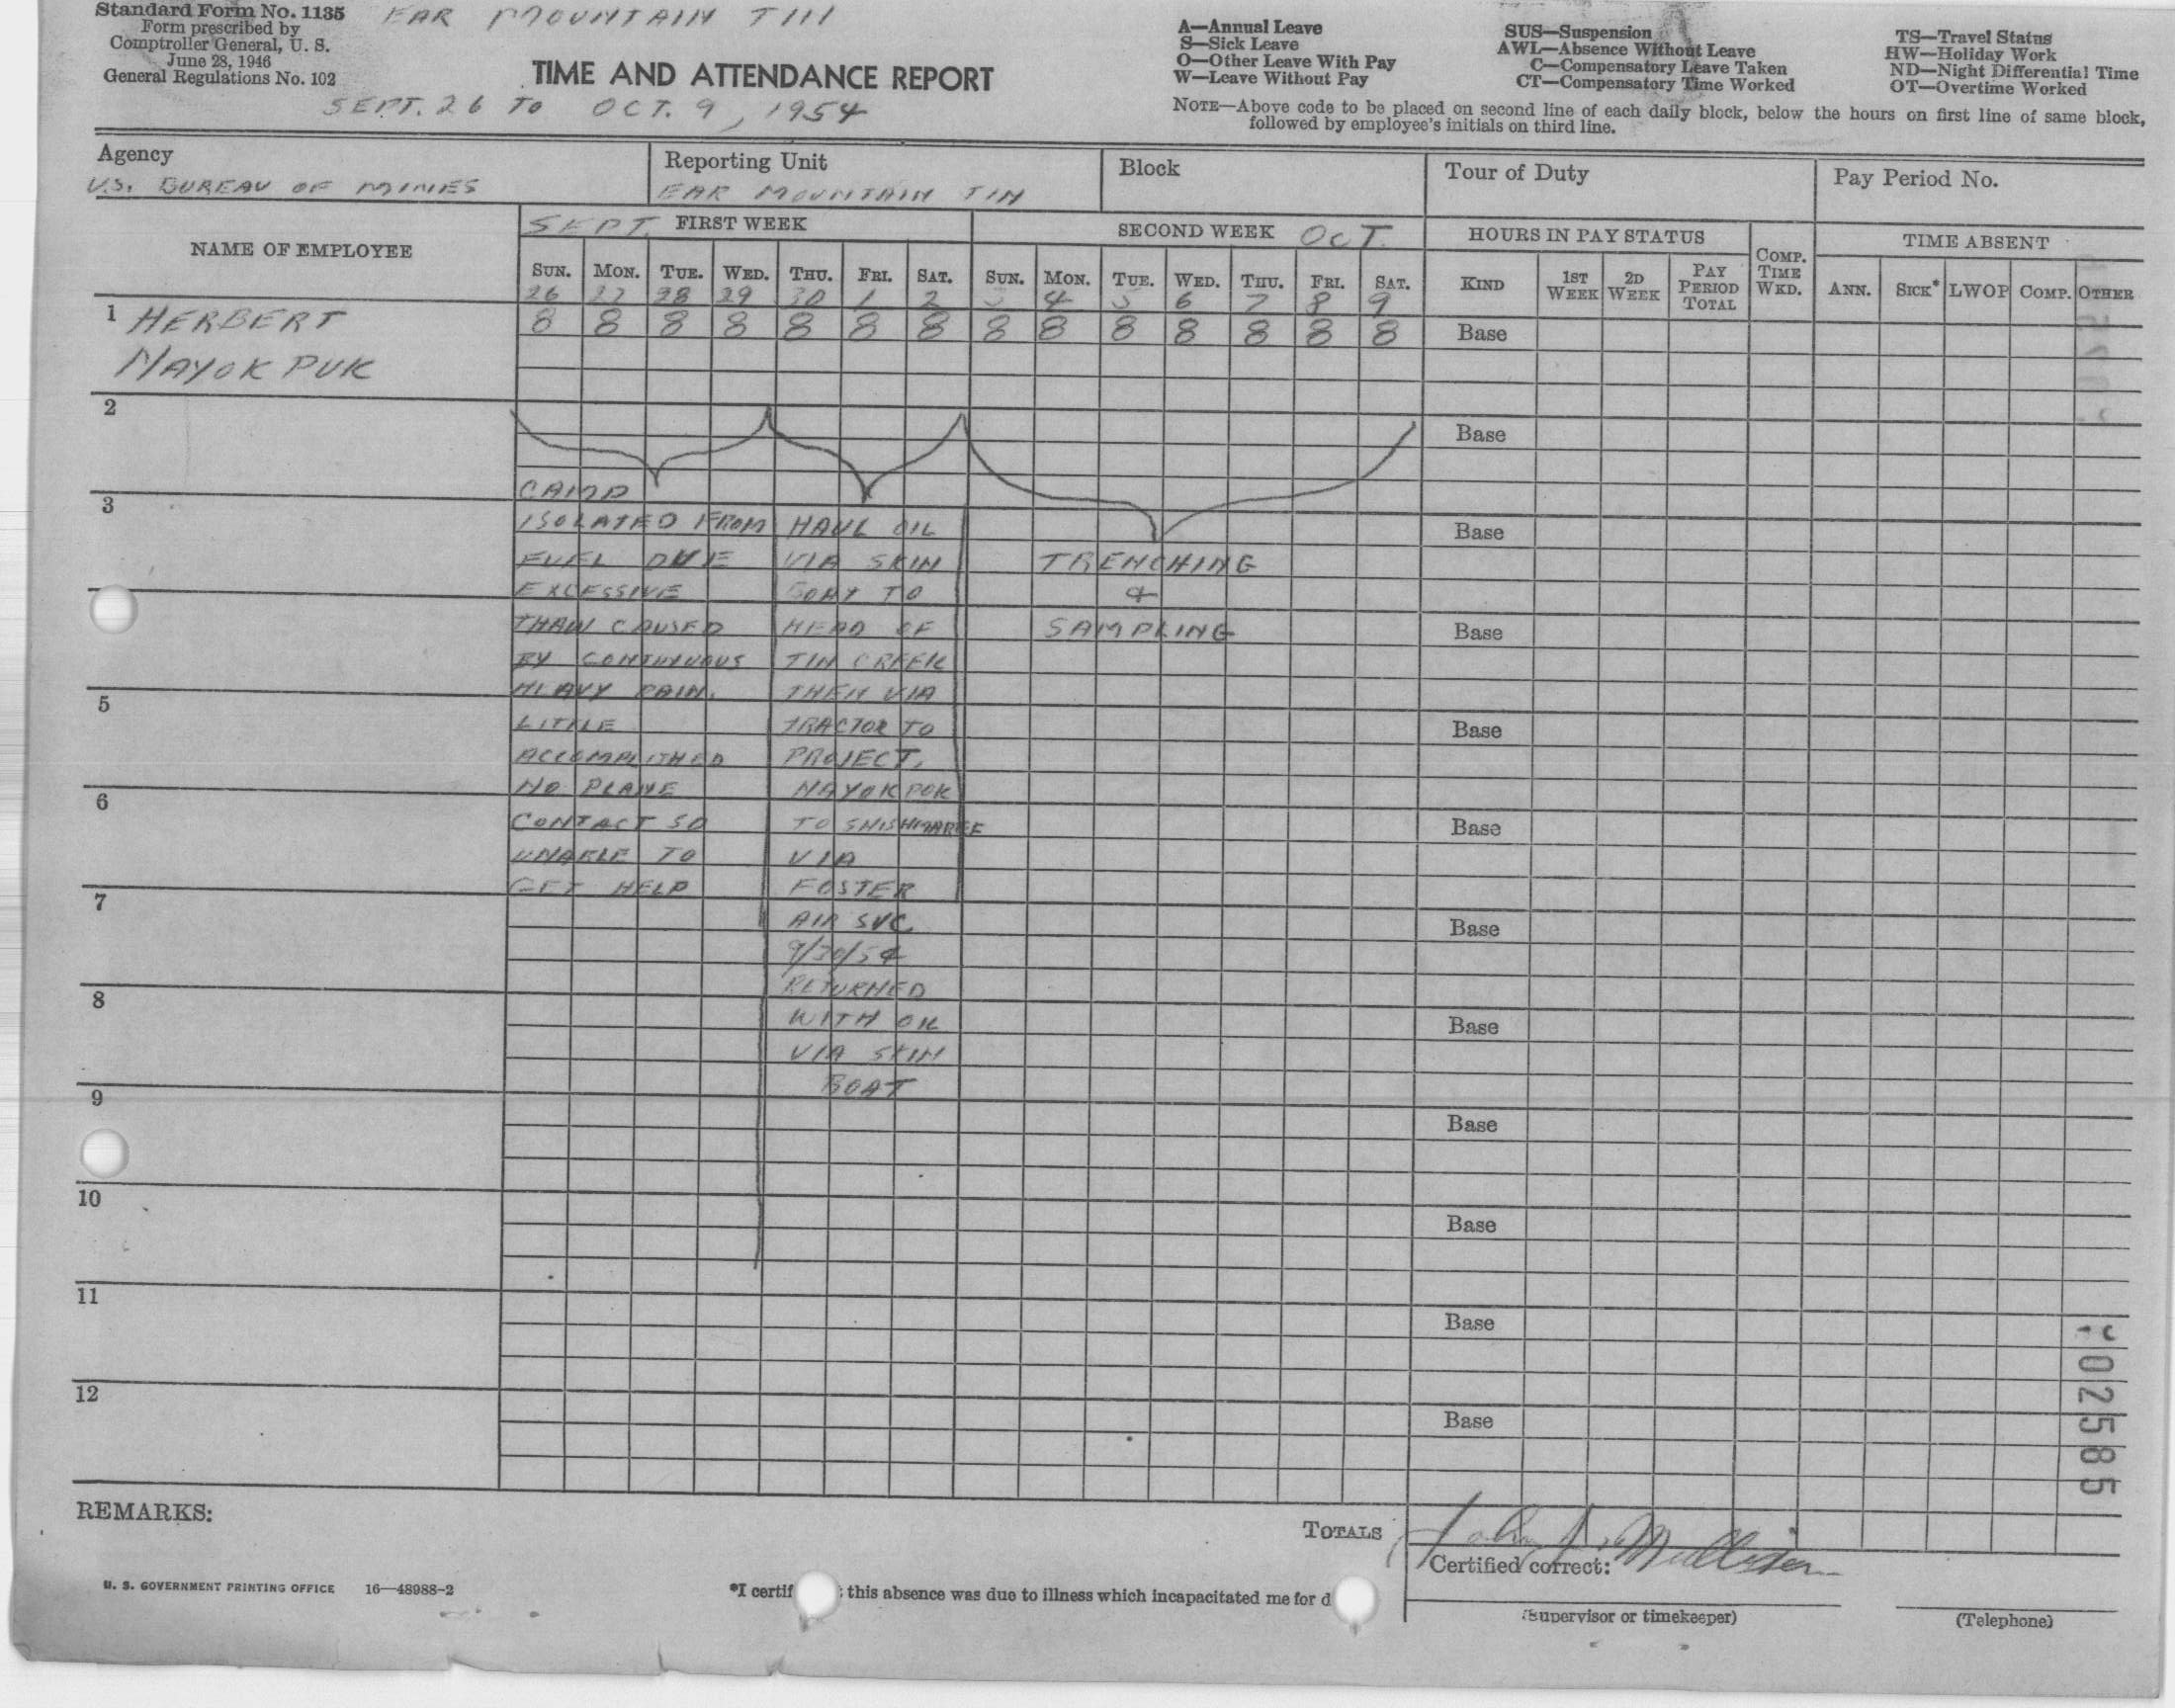 Standard Form No. 1135
Form prescribed by
Comptroller General, U. S.
June 28, 1946
General Regulations No. 102
EAR MOUNTAIN TIN
TIME AND ATTENDANCE REPORT
SEPT. 26 TO OCT. 9, 1954
A—Annual Leave
S—Sick Leave
O—Other Leave With Pay
W—Leave Without Pay
SUS—Suspension
AWL—Absence Without Leave
C—Compensatory Leave Taken
CT—Compensatory Time Worked
TS—Travel Status
HW—Holiday Work
ND—Night Differential Time
OT—Overtime Worked
NOTE—Above code to be placed on second line of each daily block, below the hours on first line of same block,
followed by employee's initials on third line.
Agency
U.S. BUREAU OF MINES
Reporting Unit
EAR MOUNTAIN TIN
Block
Tour of Duty
Pay Period No.
NAME OF EMPLOYEE
SEPT. FIRST WEEK
SECOND WEEK OCT.
HOURS IN PAY STATUS
COMP. TIME WKD.
TIME ABSENT
SUN. MON. TUE. WED. THU. FRI. SAT. SUN. MON. TUE. WED. THU. FRI. SAT.
KIND 1ST WEEK 2D WEEK PAY PERIOD TOTAL
ANN. SICK* LWOP COMP. OTHER
26 27 28 29 30 1 2 3 4 5 6 7 8 9
1 HERBERT
NAYOKPUK
8 8 8 8 8 8 8 8 8 8 8 8 8 8 Base
2 Base
3 Base
Base
5 Base
6 Base
7 Base
8 Base
9 Base
10 Base
11 Base
12 Base
CAMP
ISOLATED FROM
FUEL DUE
EXCESSIVE
THAW CAUSED
BY CONTINUOUS
HEAVY RAIN.
LITTLE
ACCOMPLISHED
NO PLANE
CONTACT SO
UNABLE TO
GET HELP
HAUL OIL
VIA SKIN
BOAT TO
HEAD OF
TIN CREEK
THEN VIA
TRACTOR TO
PROJECT.
NAYOKPOK
TO SHISHMAREF
VIA
FOSTER
AIR SVC
9/30/54
RETURNED
WITH OIL
VIA SKIN
BOAT
TRENCHING
&
SAMPLING
REMARKS:
TOTALS
Certified correct:
(Supervisor or timekeeper)
(Telephone)
U. S. GOVERNMENT PRINTING OFFICE 16—48988-2
*I certif this absence was due to illness which incapacitated me for d
02585